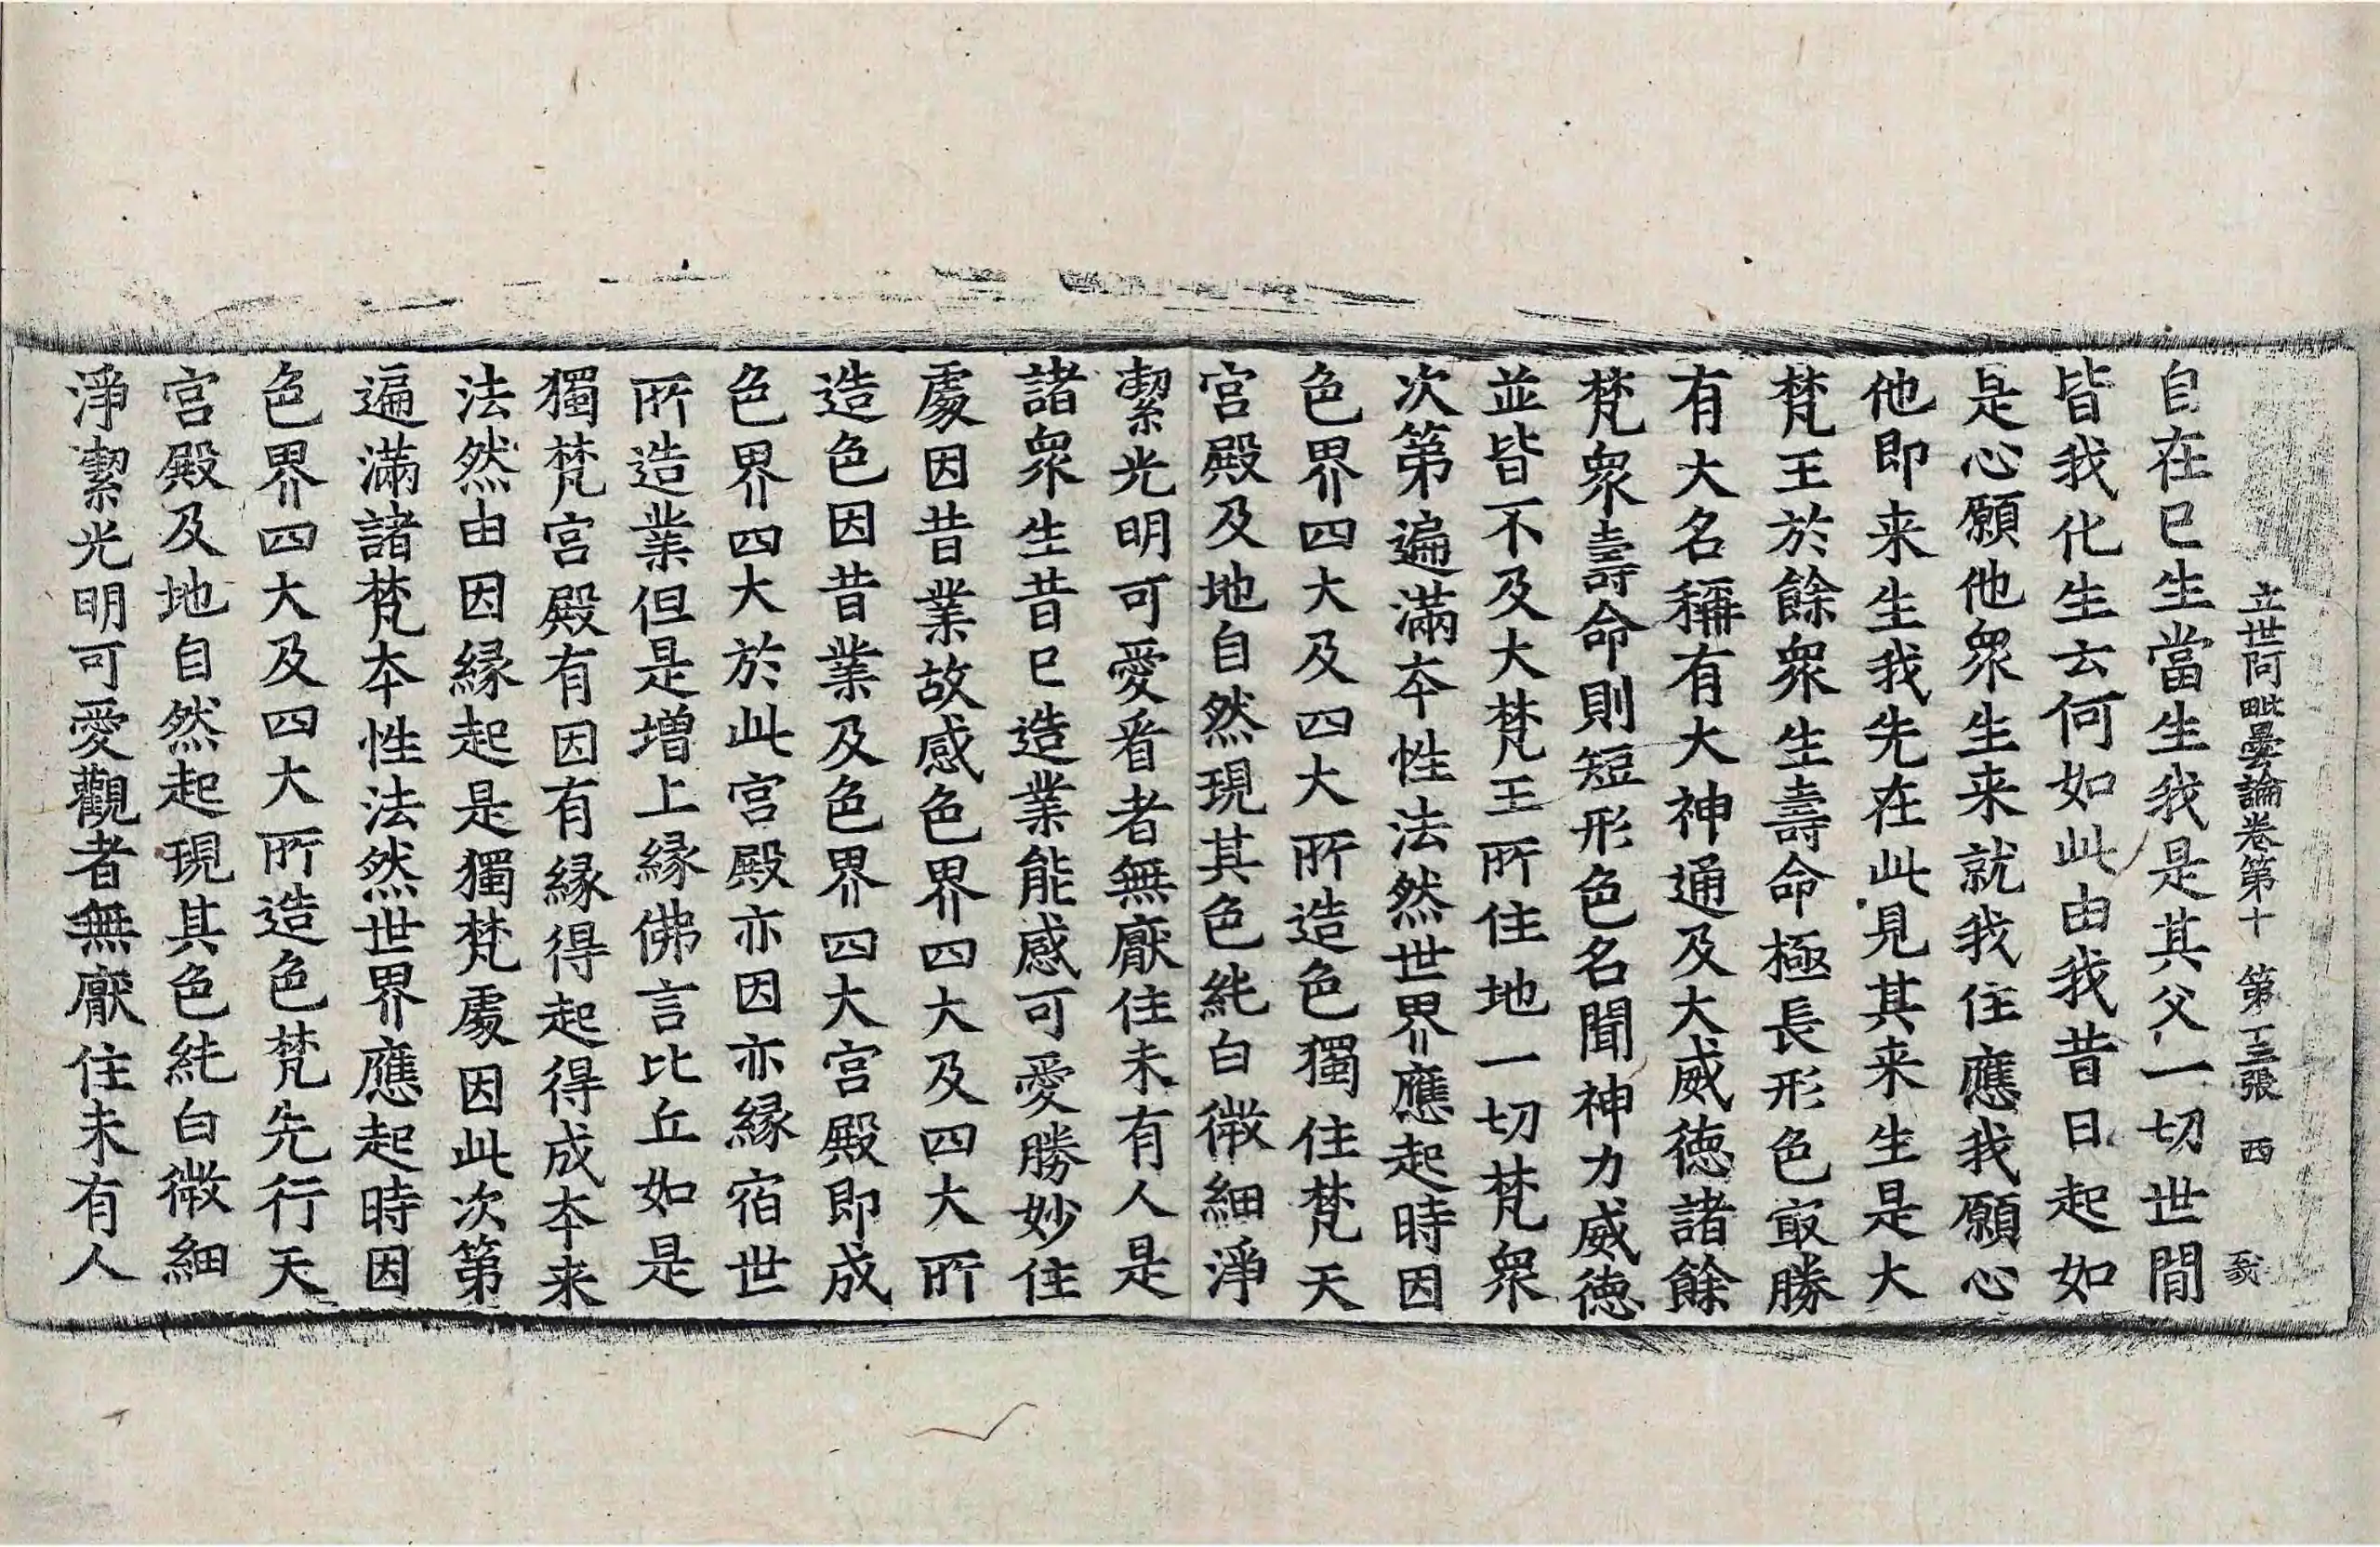 立世阿毗曇論卷第十　第十三張　西
自在已生當生我是其父一切世間
皆我化生云何如此由我昔日起如
是心願他衆生来就我住應我願心
他即来生我先在此見其来生是大
梵王於餘衆生壽命極長形色㝡勝
有大名稱有大神通及大威徳諸餘
梵衆壽命則短形色名聞神力威徳
並皆不及大梵王所住地一切梵衆
次第遍滿夲性法然世界應起時因
色界四大及四大所造色獨住梵天
宫殿及地自然現其色純白微細淨
潔光明可愛看者無厭住未有人是
諸衆生昔已造業能感可愛勝妙住
處因昔業故感色界四大及四大所
造色因昔業及色界四大宫殿即成
色界四大於此宫殿亦因亦縁宿世
所造業但是增上縁佛言比丘如是
獨梵宫殿有因有縁得起得成夲来
法然由因縁起是獨梵處因此次第
遍滿諸梵夲性法然世界應起時因
色界四大及四大所造色梵先行天
宫殿及地自然起現其色純白微細
淨潔光明可愛觀者無厭住未有人